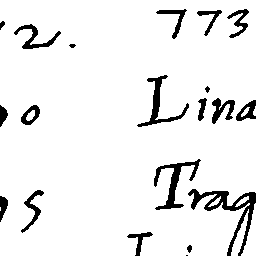 2. 773
o Lina
s Trag